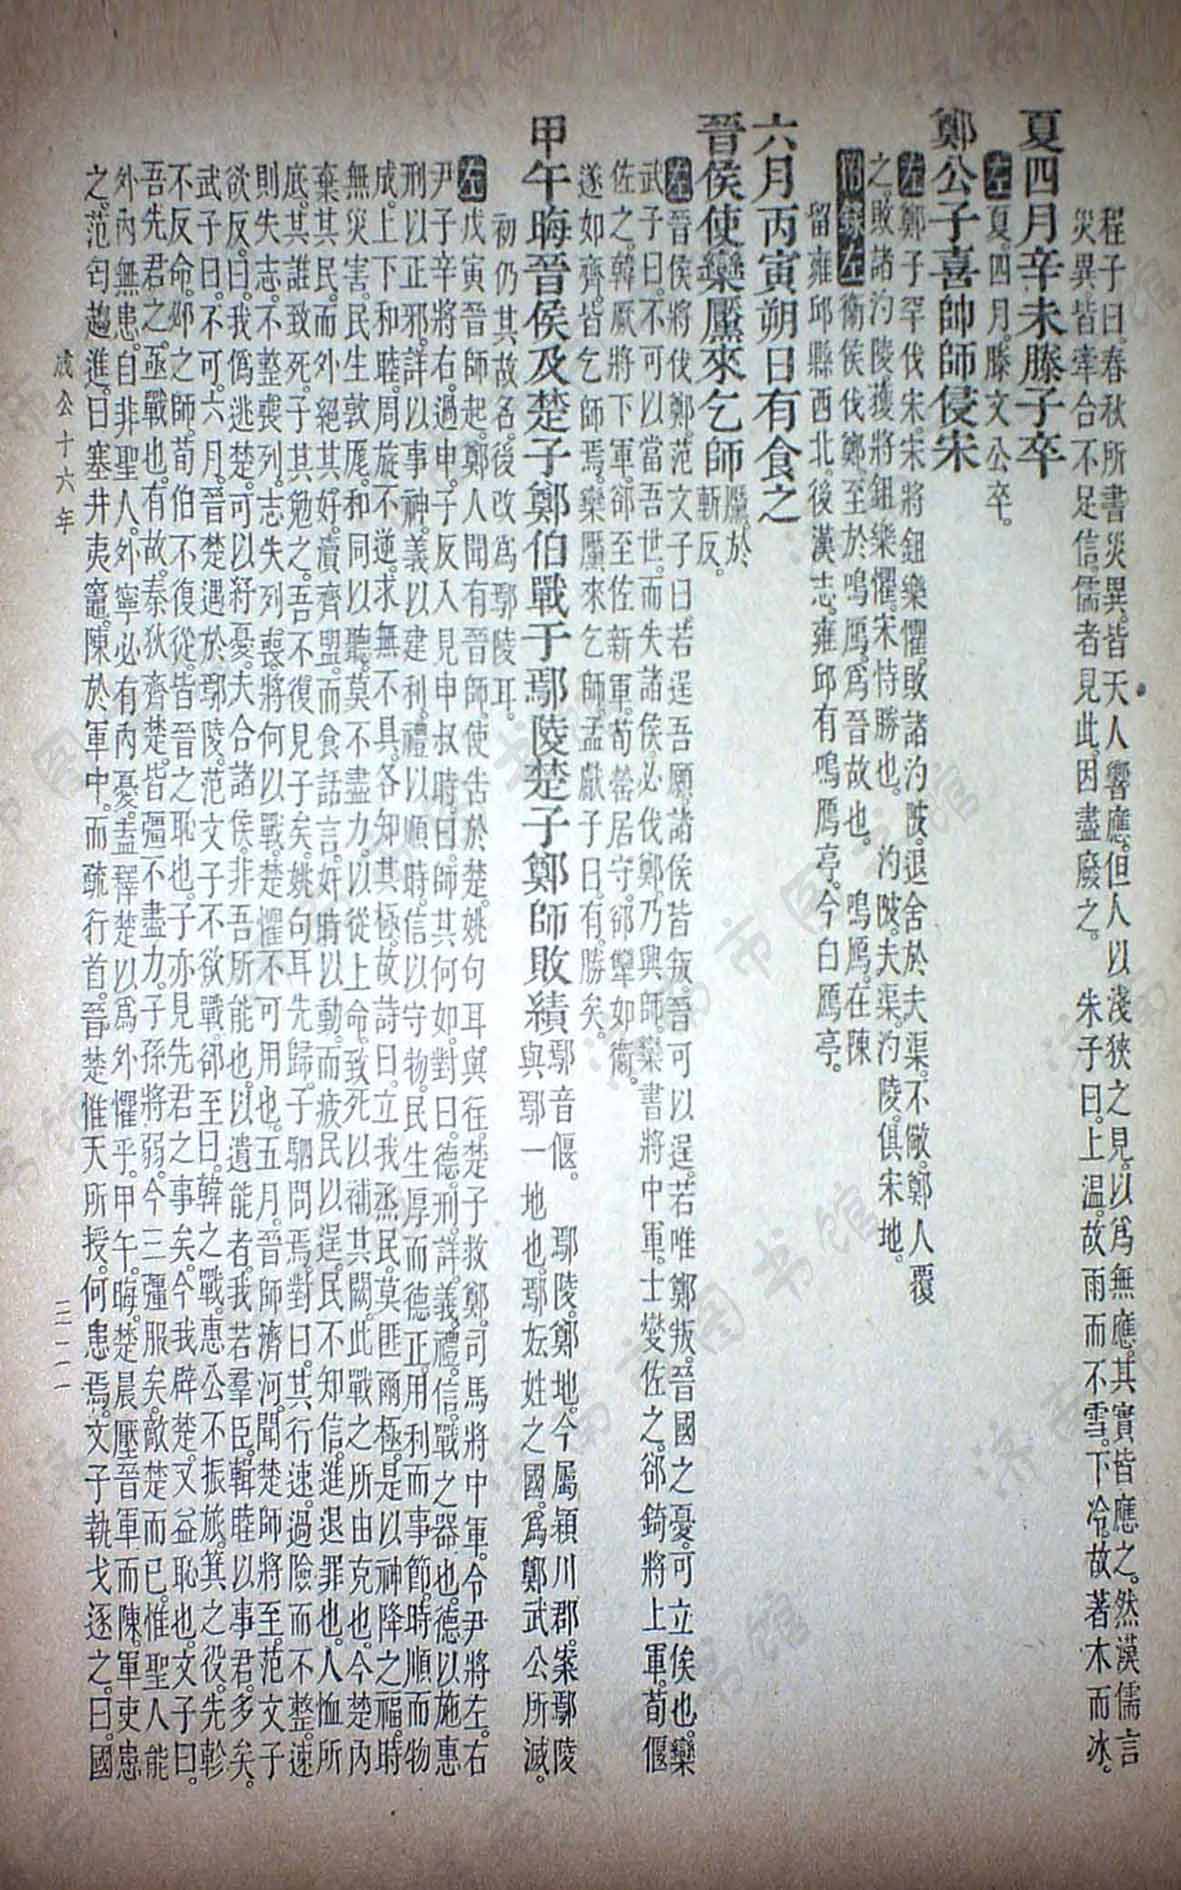 程子曰。春秋所書災異。皆天人響應。但人以淺狹之見。以爲無應。其實皆應之。然漢儒言
災異皆牽合不足信。儒者見此。因盡廢之。　朱子曰。上溫。故雨而不雪。下冷。故著木而冰。
夏四月辛未滕子卒
左夏。四月。滕文公卒。
鄭公子喜帥師侵宋
左鄭子罕伐宋。宋將鉏樂懼。敗諸汋陂。退舍於夫渠。不儆。鄭人覆
之。敗諸汋陵。獲將鉏樂懼。宋恃勝也。　汋陂。夫渠。汋陵。俱宋地。
附錄左衞侯伐鄭。至於鳴鴈。爲晉故也。　鳴鴈。在陳
留雍邱縣西北。後漢志。雍邱有鳴鴈亭。今白鴈亭。
六月丙寅朔日有食之
晉侯使欒黶來乞師黶。於
斬反。
左晉侯將伐鄭。范文子曰。若逞吾願。諸侯皆叛。晉可以逞。若唯鄭叛。晉國之憂。可立俟也。欒
武子曰。不可以當吾世。而失諸侯。必伐鄭。乃興師。欒書將中軍。士燮佐之。郤錡將上軍。荀偃
佐之。韓厥將下軍。郤至佐新軍。荀罃居守。郤犫如衞。
遂如齊。皆乞師焉。欒黶來乞師。孟獻子曰。有勝矣。
甲午晦晉侯及楚子鄭伯戰于鄢陵楚子鄭師敗績鄢音偃。　鄢陵。鄭地。今屬潁川郡。案鄢陵
與鄢一地也。鄢妘姓之國。爲鄭武公所滅。
初仍其故名。後改爲鄢陵耳。
左戊寅。晉師起。鄭人聞有晉師。使告於楚。姚句耳與往。楚子救鄭。司馬將中軍。令尹將左。右
尹子辛將右。過申。子反入見申叔時曰。師其何如。對曰。德。刑。詳。義。禮。信。戰之器也。德以施惠
刑以正邪。詳以事神。義以建利。禮以順時。信以守物。民生厚而德正。用利而事節。時順而物
成。上下和睦。周旋不逆。求無不具。各知其極。故詩曰。立我烝民。莫匪爾極。是以神降之福。時
無災害。民生敦厖。和同以聽。莫不盡力。以從上命。致死以補其闕。此戰之所由克也。今楚內
棄其民。而外絕其好。瀆齊盟。而食話言。奸時以動。而疲民以逞。民不知信。進退罪也。人恤所
底。其誰致死。子其勉之。吾不復見子矣。姚句耳先歸。子駟問焉。對曰。其行速。過險而不整。速
則失志。不整喪列。志失列喪。將何以戰。楚懼不可用也。五月。晉師濟河。聞楚師將至。范文子
欲反。曰。我僞逃楚。可以紓憂。夫合諸侯。非吾所能也。以遺能者。我若羣臣。輯睦以事君。多矣。
武子曰。不可。六月。晉楚遇於鄢陵。范文子不欲戰。郤至曰。韓之戰。惠公不振旅。箕之役。先軫
不反命。邲之師。荀伯不復從。皆晉之恥也。子亦見先君之事矣。今我辟楚。又益恥也。文子曰。
吾先君之亟戰也。有故。秦狄齊楚。皆彊。不盡力。子孫將弱。今三彊服矣。敵楚而已。惟聖人能
外內無患。自非聖人。外寧必有內憂。盍釋楚以爲外懼乎。甲午。晦。楚晨壓晉軍而陳。軍吏患
之。范匄趨進。曰塞井夷竈。陳於軍中。而疏行首。晉。楚惟天所授。何患焉。文子執戈逐之。曰。國
成公十六年
三一一